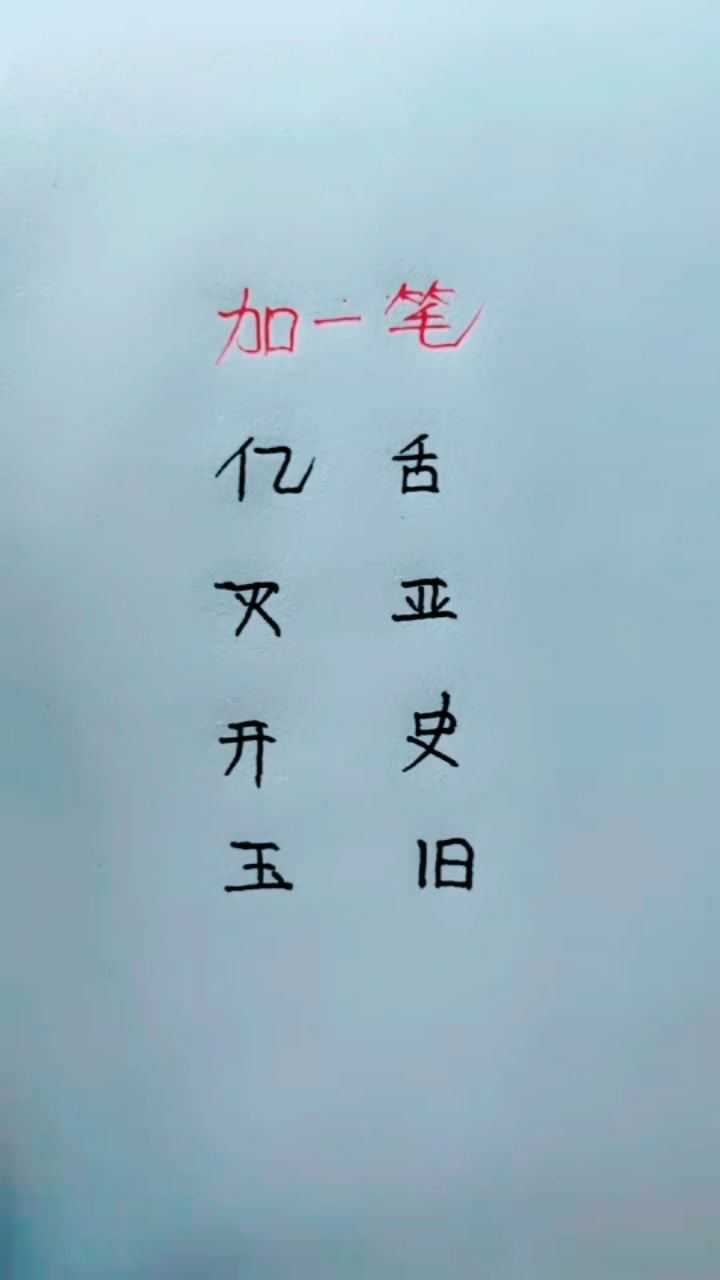 加一笔
亿 舌
灭 亚
开 史
玉 旧